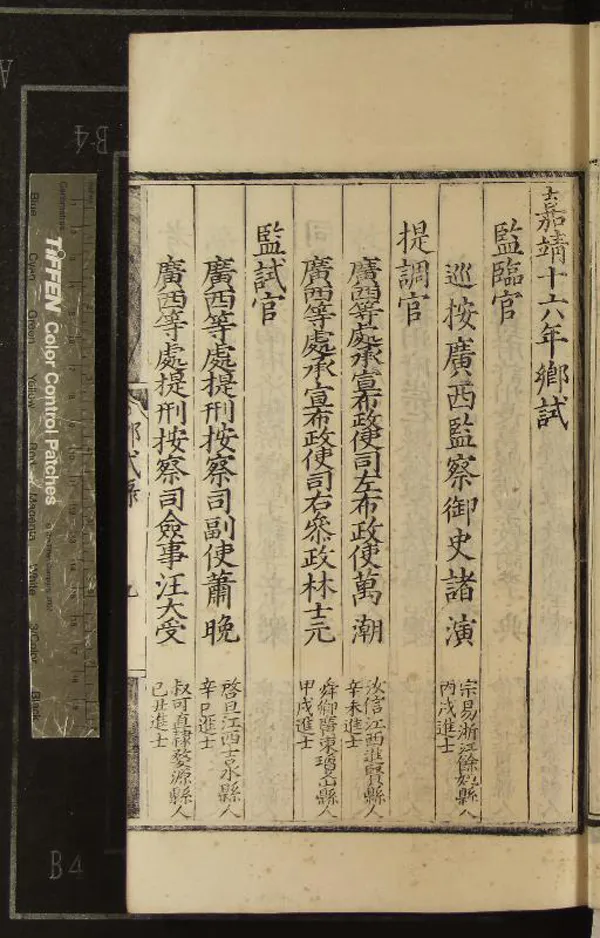 嘉靖十六年鄉試
監臨官
巡按廣西監察御史諸演
宗易浙江餘姚縣人
丙戌進士
提調官
廣西等處承宣布政使司左布政使萬潮
汝信江西進賢縣人
辛未進士
廣西等處承宣布政使司右叅政林士元
舜卿廣東瓊山縣人
甲戌進士
監試官
廣西等處提刑按察司副使蕭晚
啓旦江西吉水縣人
辛巳進士
廣西等處提刑按察司僉事汪大受
叔可直隸婺源縣人
己丑進士
鄉試錄
九
TIFFEN Color Control Patches
Blue
Cyan
Green
Yellow
Red
Magenta
White
3/Color
Black
Centimetres
B4
B4
A